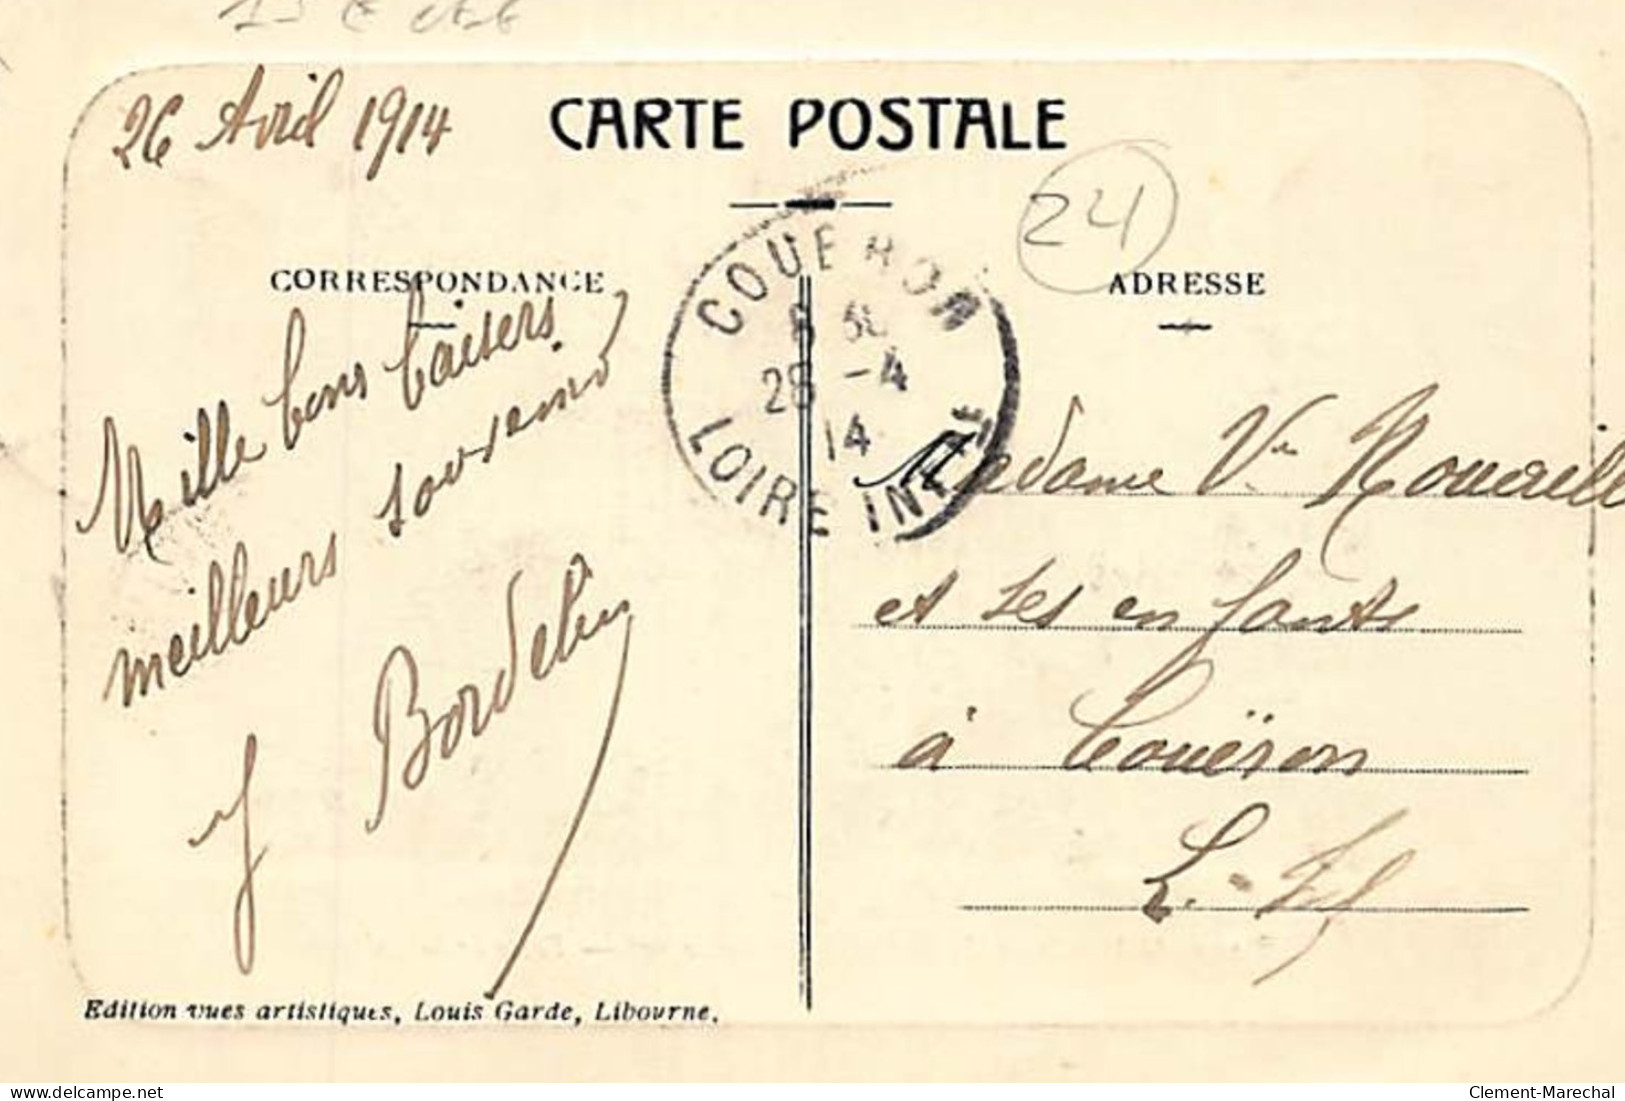 26 Avril 1914
CARTE POSTALE
24
CORRESPONDANCE
ADRESSE
COUERON
28 -4
14
LOIRE INF
Mille bons baisers
meilleurs souvenirs
J Bordelin
Madame Ve
et ses enfants
à Couëron
L.-Inf
Edition vues artistiques, Louis Garde, Libourne.
delcampe.net
Clement-Marechal